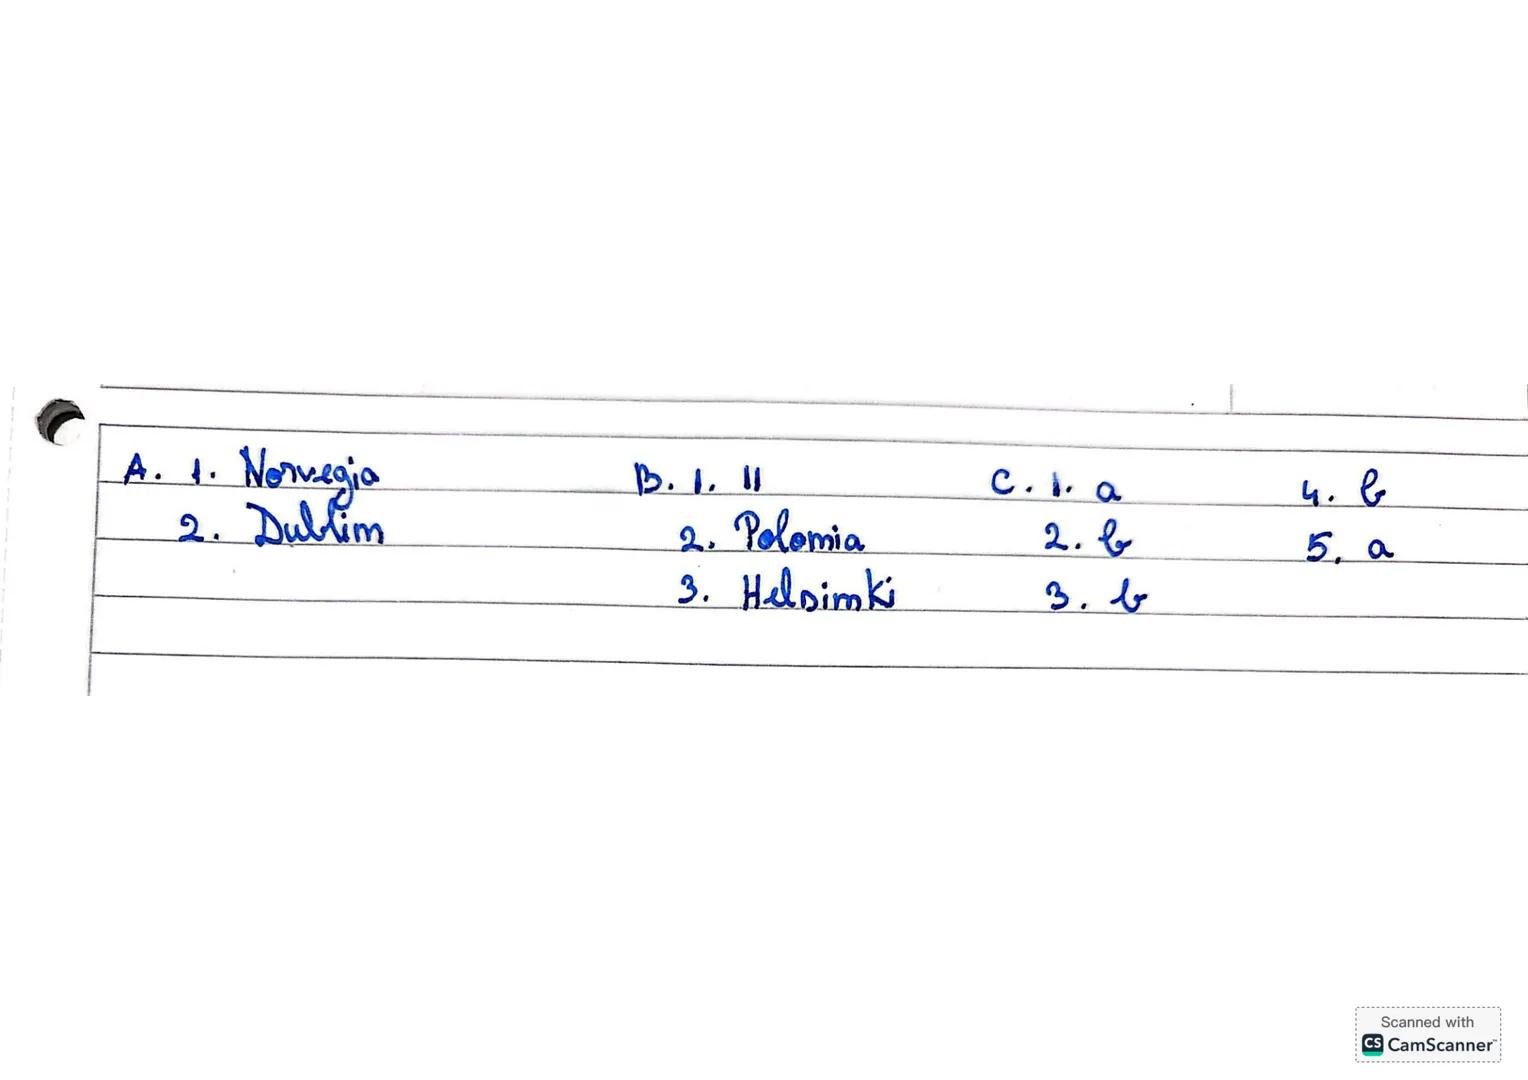 A. 1. Norvegia B. 1. 11 C. 1. a 4. b
2. Dublin 2. Polonia 2. b 5. a
3. Helsinki 3. b
Scanned with
CS CamScanner